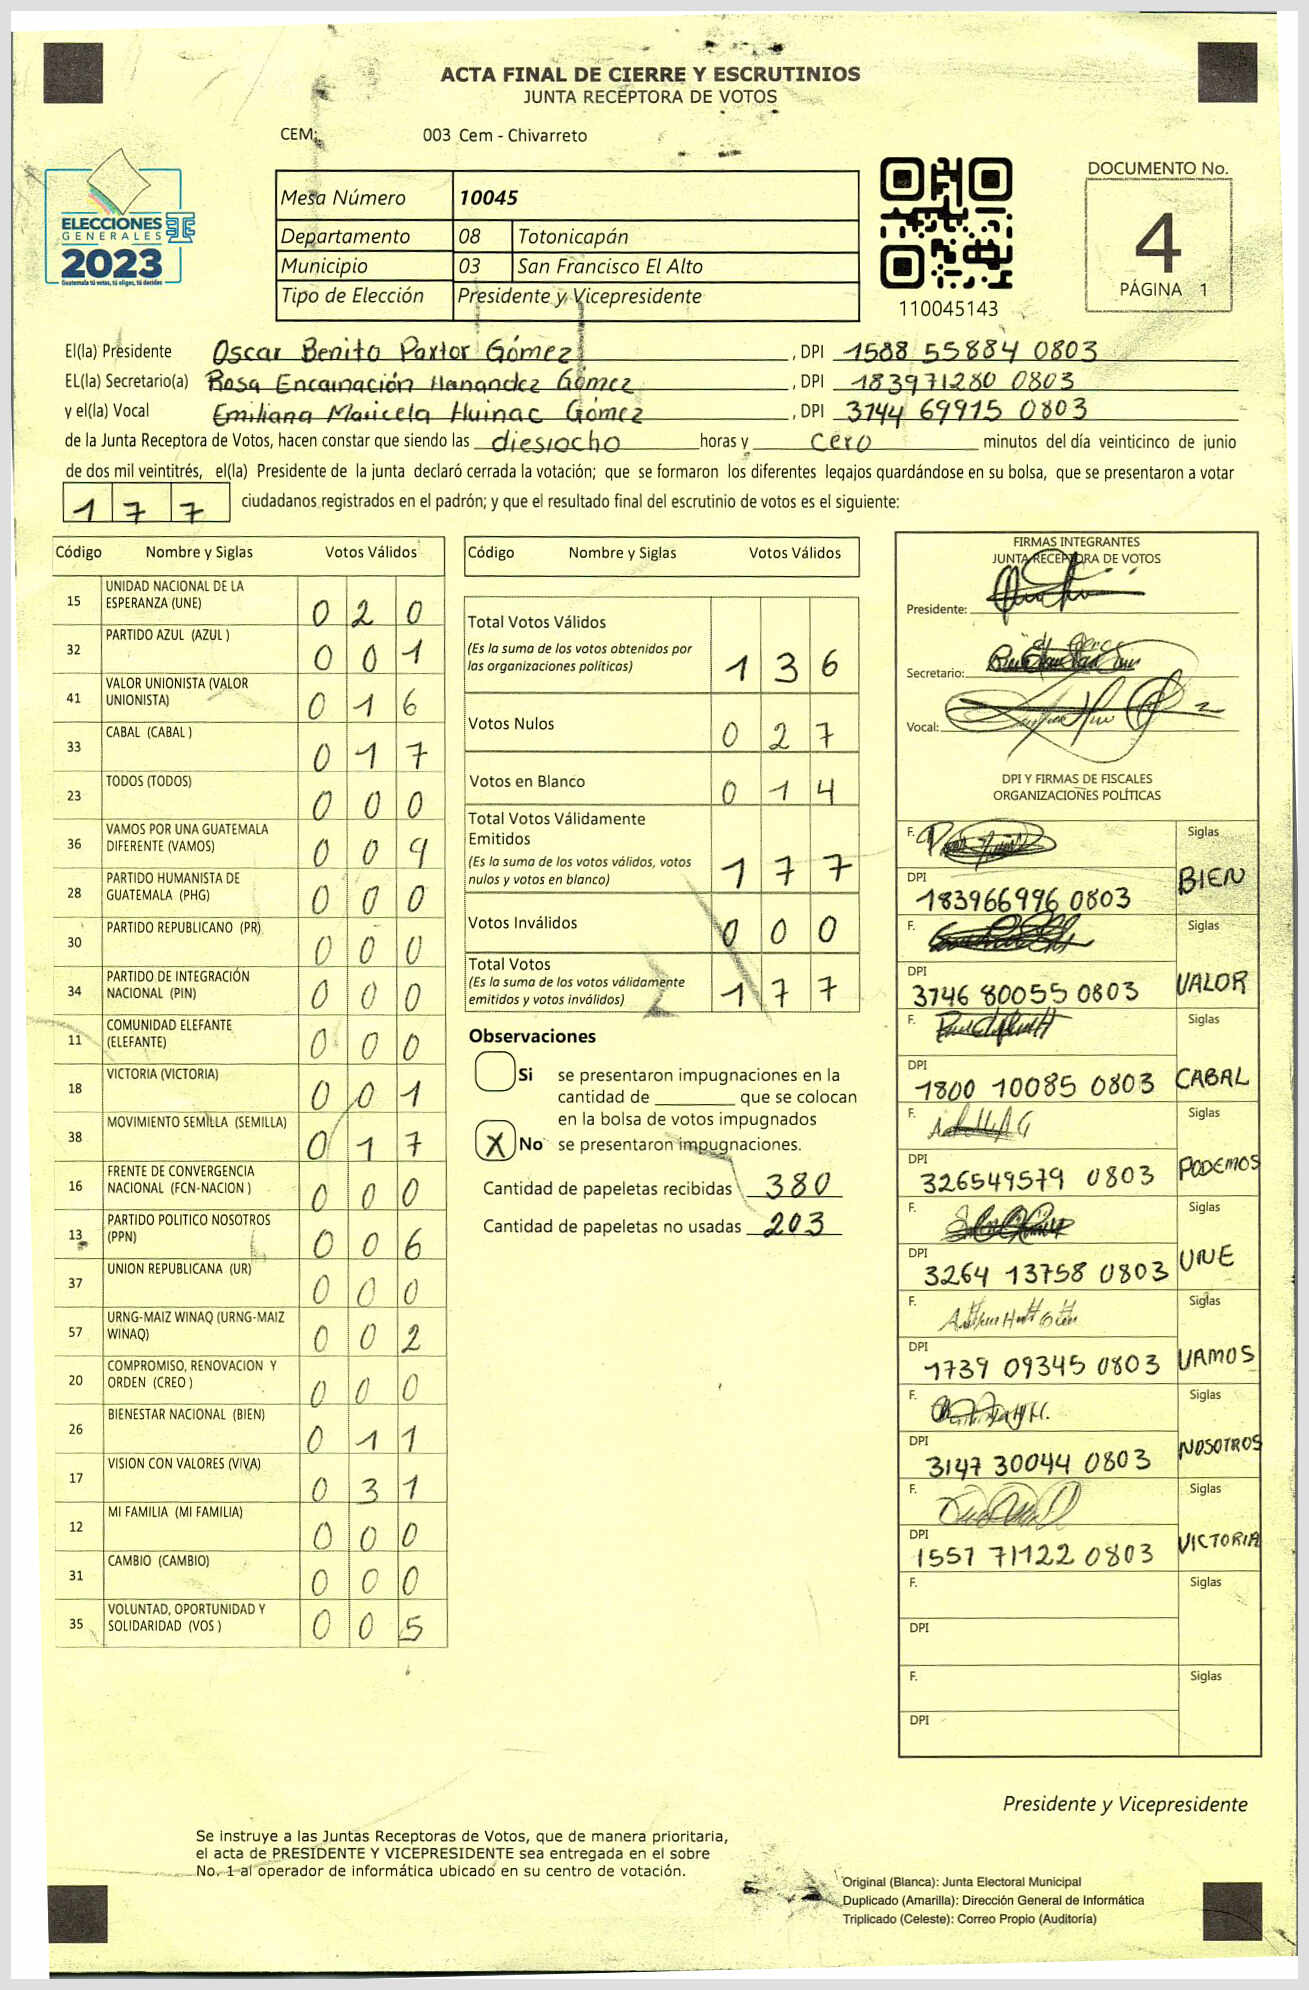 ACTA FINAL DE CIERRE Y ESCRUTINIOS
JUNTA RECEPTORA DE VOTOS
CEM: 003 Cem - Chivarreto
ELECCIONES
GENERALES
2023
Guatemala tú votas, tú eliges, tú decides
Mesa Número 10045
Departamento 08 Totonicapán
Municipio 03 San Francisco El Alto
Tipo de Elección Presidente y Vicepresidente
110045143
DOCUMENTO No.
4
PÁGINA 1
El(la) Presidente Oscar Benito Paxtor Gómez, DPI 1588 55884 0803
EL(la) Secretario(a) Rosa Encarnación Hernandez Gómez, DPI 183971280 0803
y el(la) Vocal Emiliana Maricela Huinac Gómez, DPI 3744 69915 0803
de la Junta Receptora de Votos, hacen constar que siendo las diesiocho horas y cero minutos del día veinticinco de junio
de dos mil veintitrés, el(la) Presidente de la junta declaró cerrada la votación; que se formaron los diferentes legajos quardándose en su bolsa, que se presentaron a votar
177 ciudadanos registrados en el padrón; y que el resultado final del escrutinio de votos es el siguiente:
Código Nombre y Siglas Votos Válidos
15 UNIDAD NACIONAL DE LA ESPERANZA (UNE) 0 2 0
32 PARTIDO AZUL (AZUL ) 0 0 1
41 VALOR UNIONISTA (VALOR UNIONISTA) 0 1 6
33 CABAL (CABAL ) 0 1 7
23 TODOS (TODOS) 0 0 0
36 VAMOS POR UNA GUATEMALA DIFERENTE (VAMOS) 0 0 9
28 PARTIDO HUMANISTA DE GUATEMALA (PHG) 0 0 0
30 PARTIDO REPUBLICANO (PR) 0 0 0
34 PARTIDO DE INTEGRACIÓN NACIONAL (PIN) 0 0 0
11 COMUNIDAD ELEFANTE (ELEFANTE) 0 0 0
18 VICTORIA (VICTORIA) 0 0 1
38 MOVIMIENTO SEMILLA (SEMILLA) 0 1 7
16 FRENTE DE CONVERGENCIA NACIONAL (FCN-NACION ) 0 0 0
13 PARTIDO POLITICO NOSOTROS (PPN) 0 0 6
37 UNION REPUBLICANA (UR) 0 0 0
57 URNG-MAIZ WINAQ (URNG-MAIZ WINAQ) 0 0 2
20 COMPROMISO, RENOVACION Y ORDEN (CREO ) 0 0 0
26 BIENESTAR NACIONAL (BIEN) 0 1 1
17 VISION CON VALORES (VIVA) 0 3 1
12 MI FAMILIA (MI FAMILIA) 0 0 0
31 CAMBIO (CAMBIO) 0 0 0
35 VOLUNTAD, OPORTUNIDAD Y SOLIDARIDAD (VOS ) 0 0 5
Código Nombre y Siglas Votos Válidos
Total Votos Válidos 1 3 6
(Es la suma de los votos obtenidos por
las organizaciones políticas)
Votos Nulos 0 2 7
Votos en Blanco 0 1 4
Total Votos Válidamente
Emitidos 1 7 7
(Es la suma de los votos válidos, votos
nulos y votos en blanco)
Votos Inválidos 0 0 0
Total Votos 1 7 7
(Es la suma de los votos válidamente
emitidos y votos inválidos)
Observaciones
Si se presentaron impugnaciones en la
cantidad de ________ que se colocan
en la bolsa de votos impugnados
X No se presentaron impugnaciones.
Cantidad de papeletas recibidas 380
Cantidad de papeletas no usadas 203
FIRMAS INTEGRANTES
JUNTA RECEPTORA DE VOTOS
Presidente:
Secretario:
Vocal:
DPI Y FIRMAS DE FISCALES
ORGANIZACIONES POLÍTICAS
F. Siglas
DPI 183966996 0803 BIEN
F. Siglas
DPI 3746 80055 0803 VALOR
F. Siglas
DPI 1800 10085 0803 CABAL
F. Siglas
DPI 326549579 0803 PODEMOS
F. Siglas
DPI 3264 13758 0803 UNE
F. Siglas
DPI 1739 09345 0803 VAMOS
F. Siglas
DPI 3147 30044 0803 NOSOTROS
F. Siglas
DPI 1557 71122 0803 VICTORIA
F. Siglas
DPI
F. Siglas
DPI
Presidente y Vicepresidente
Se instruye a las Juntas Receptoras de Votos, que de manera prioritaria,
el acta de PRESIDENTE Y VICEPRESIDENTE sea entregada en el sobre
No. 1 al operador de informática ubicado en su centro de votación.
Original (Blanca): Junta Electoral Municipal
Duplicado (Amarilla): Dirección General de Informática
Triplicado (Celeste): Correo Propio (Auditoría)